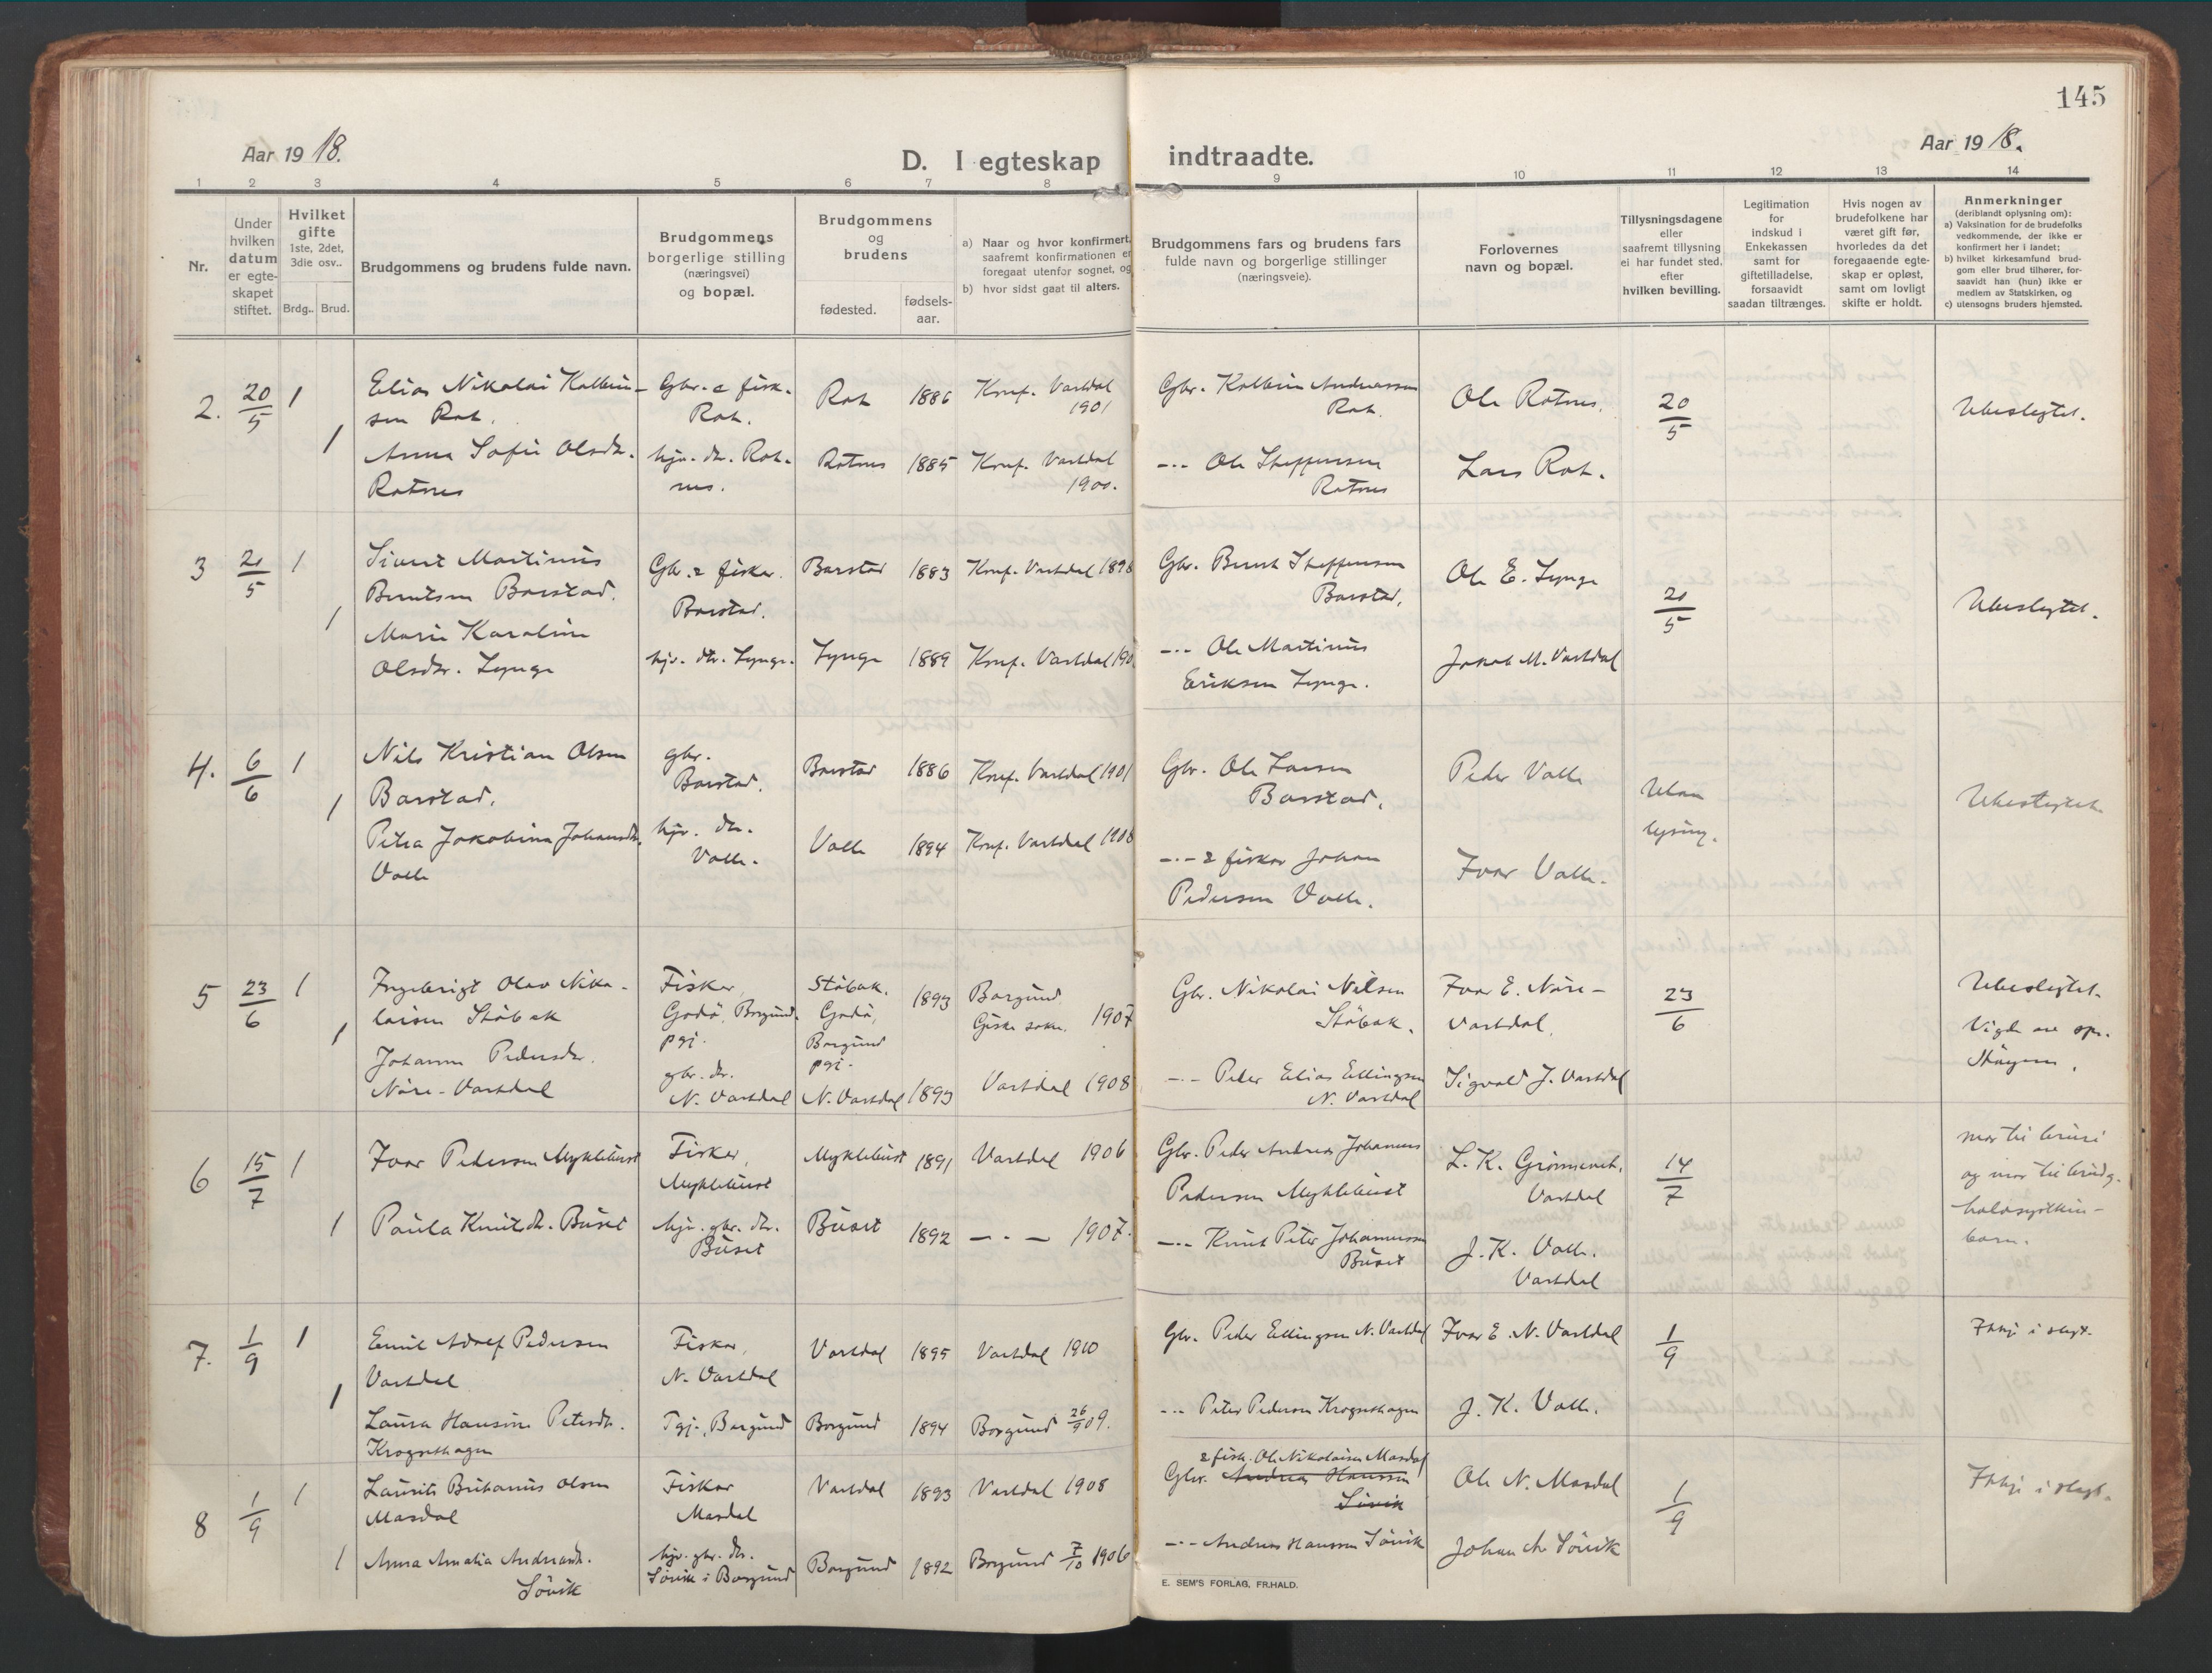 145
Aar 19 18.
D. I egteskap indtraadte.
Aar 19 18.
1 2 3 4 5 6 7 8 9 10 11 12 13 14
Nr.
Under
hvilken
datum
er egte-
skapet
stiftet.
Hvilket
gifte
1ste, 2det,
3die osv..
Brdg.. Brud.
Brudgommens og brudens fulde navn.
Brudgommens
borgerlige stilling
(næringsvei)
og bopæl.
Brudgommens
og
brudens
fødested.
fødsels-
aar.
a) Naar og hvor konfirmert,
saafremt konfirmationen er
foregaat utenfor sognet, og
b) hvor sidst gaat til alters.
Brudgommens fars og brudens fars
fulde navn og borgerlige stillinger
(næringsveie).
Forlovernes
navn og bopæl.
Tillysningsdagene
eller
saafremt tillysning
ei har fundet sted,
efter
hvilken bevilling.
Legitimation
for
indskud i
Enkekassen
samt for
giftetilladelse,
forsaavidt
saadan tiltrænges.
Hvis nogen av
brudefolkene har
været gift før,
hvorledes da det
foregaaende egte-
skap er opløst,
samt om lovligt
skifte er holdt.
Anmerkninger
(deriblandt oplysning om):
a) Vaksination for de brudefolks
vedkommende, der ikke er
konfirmert her i landet;
b) hvilket kirkesamfund brud-
gom eller brud tilhører, for-
saavidt han (hun) ikke er
medlem av Statskirken, og
c) utensogns bruders hjemsted.
2. 20/5 1
Elias Nikolai Kolbein-
sen Rot.
Gbr. & fisk.
Rot.
Rot 1886 Konf. Vartdal
1901
Gbr. Kolbein Andreassen
Rot.
Ole Rotnes.
20/5
Ubeslegtet.
1
Anna Sofie Olsdtr.
Rotnes
hjv. dtr. Rot-
nes.
Rotnes 1885 Konf. Vartdal
1900.
-"- Ole Steffensen
Rotnes
Lars Rot.
3 21/5 1
Sivert Martinus
Berntsen Barstad.
Gbr. & fisker.
Barstad.
Barstad 1883 Konf. Vartdal 1898
Gbr. Bernt Steffensen
Barstad.
Ole E. Lynge
21/5
Ubeslegtet.
1
Marie Karoline
Olsdtr. Lynge
hjv. dtr. Lynge.
Lynge 1889 Konf. Vartdal 190
-"- Ole Martinus
Eriksen Lynge.
Jakob M. Vartdal
4. 6/6 1
Nils Kristian Olsen
Barstad.
gbr.
Barstad.
Barstad 1886 Konf. Vartdal 1901
Gbr. Ole Larsen
Barstad.
Peder Valle
Uten
lysing.
Ubeslegtet
1
Petra Jakobine Johansdtr.
Valle
hjv. dtr.
Valle.
Valle 1894 Konf. Vartdal 1908
-"- & fisker Johan
Pedersen Valle.
Ivar Valle.
5 23/6 1
Ingebrigt Olav Niko-
laisen Støbak
Fisker,
Godø, Borgund
pgj.
Støbak.
Godø,
Borgund
pgj.
1893 Borgund
Giske sokn. 1907
Gbr. Nikolai Nilsen
Støbak.
Ivar E. Nøre-
vartdal.
23/6
Ubeslegtet.
Vigde av spr.
Støyen.
1
Johanne Pedersdtr.
Nøre-Vartdal
gbr. dtr.
N. Vartdal
N. Vartdal 1893 Vartdal 1908
-"- Peder Elias Ellingsen
N. Vartdal
Sigvald J. Vartdal
6 15/7 1
Ivar Pedersen Myklebust
Fisker,
Myklebust
Myklebust 1891 Vartdal 1906
Gbr. Peder Andreas Johannes
Pedersen Myklebust
L. K. Grønnevet,
Vartdal
14/7
mor til brur
og mor til brudg.
halvsyskin-
born.
1
Paula Knutsdtr. Buset
hjv. gbr. dtr.
Buset
Buset 1892 -"- 1907.
-"- Knut Peter Johannessen
Buset
J. K. Valle.
Vartdal
7. 1/9 1
Emil Adolf Pedersen
Vartdal
Fisker,
N. Vartdal
Vartdal 1895 Vartdal 1910
Gbr. Peder Ellingsen N. Vartdal
Ivar E. N. Vartdal
1/9
Ikkje i slegt.
1
Laura Hansine Petersdtr.
Krogsethagen
Tgj., Borgund
Borgund 1894 Borgund 26/9 09.
-"- Peter Pedersen Krogsethagen
J. K. Valle.
8 1/9 1
Laurits Britanus Olsen
Masdal
Fisker
Masdal
Vartdal 1893 Vartdal 1908
& fisk. Ole Nikolaisen Masdal
Gbr. Andreas Hanssen
Søvik
Ole N. Masdal
1/9
Ikkje i slegt.
1
Anna Amalia Andreasdtr.
Søvik
hjv. gbr. dtr.
Søvik i Borgund
Borgund 1892 Borgund 7/10 1906
-"- Andreas Hanssen Søvik
Johan A. Søvik
E. SEM'S FORLAG, FR.HALD.